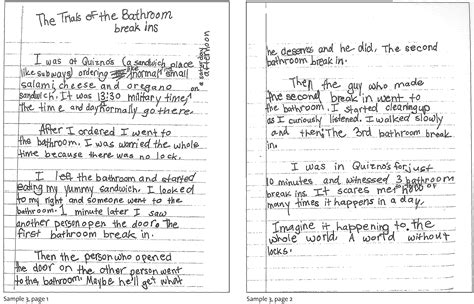 The Trials of the Bathroom
break ins
I was at Quizno's (a sandwich place
like subways) ordering the normal small
salami, cheese and oregano
sandwich. It was 13:30 military time,
the time and day I normally go there.
on a saturday
afternoon
After I ordered I went to
the bathroom. I was worried the whole
time because there was no lock.
I left the bathroom and started
eating my yummy sandwich. I looked
to my right and someone went to the
bathroom. 1 minute later I saw
another person open the door. The
first bathroom break in.
Then the person who opened
the door on the other person went
to the bathroom. Maybe he'll get what
Sample 3, page 1
he deserves and he did. The second
bathroom break in.
Then the guy who made
the second break in went to
the bathroom. I started cleaning up
as I curiously listened. I walked slowly
and then: The 3rd bathroom break
in.
I was in Quizno's for just
10 minutes and witnessed 3 bathroom
break ins. It scares me how
many times it happens in a day.
Imagine it happening to the
whole world. A world without
locks.
Sample 3, page 2